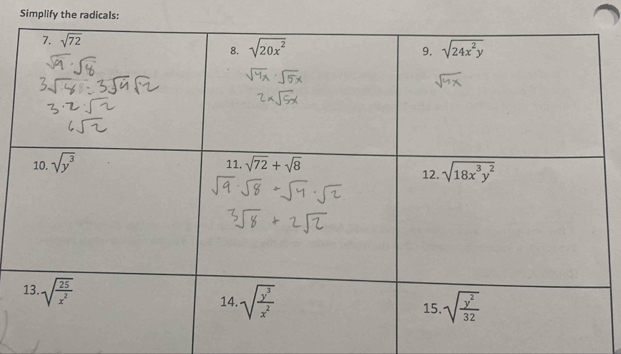 Simplify the radicals:
7. √72
√9 · √8
3√8 = 3√4 √2
3·2·√2
6√2
8. √20x²
√4x · √5x
2x√5x
9. √24x²y
√4x
10. √y³
11. √72 + √8
√9 · √8 + √4 · √2
3√8 + 2√2
12. √18x³y²
13. √25/x²
14. √y³/x²
15. √y²/32